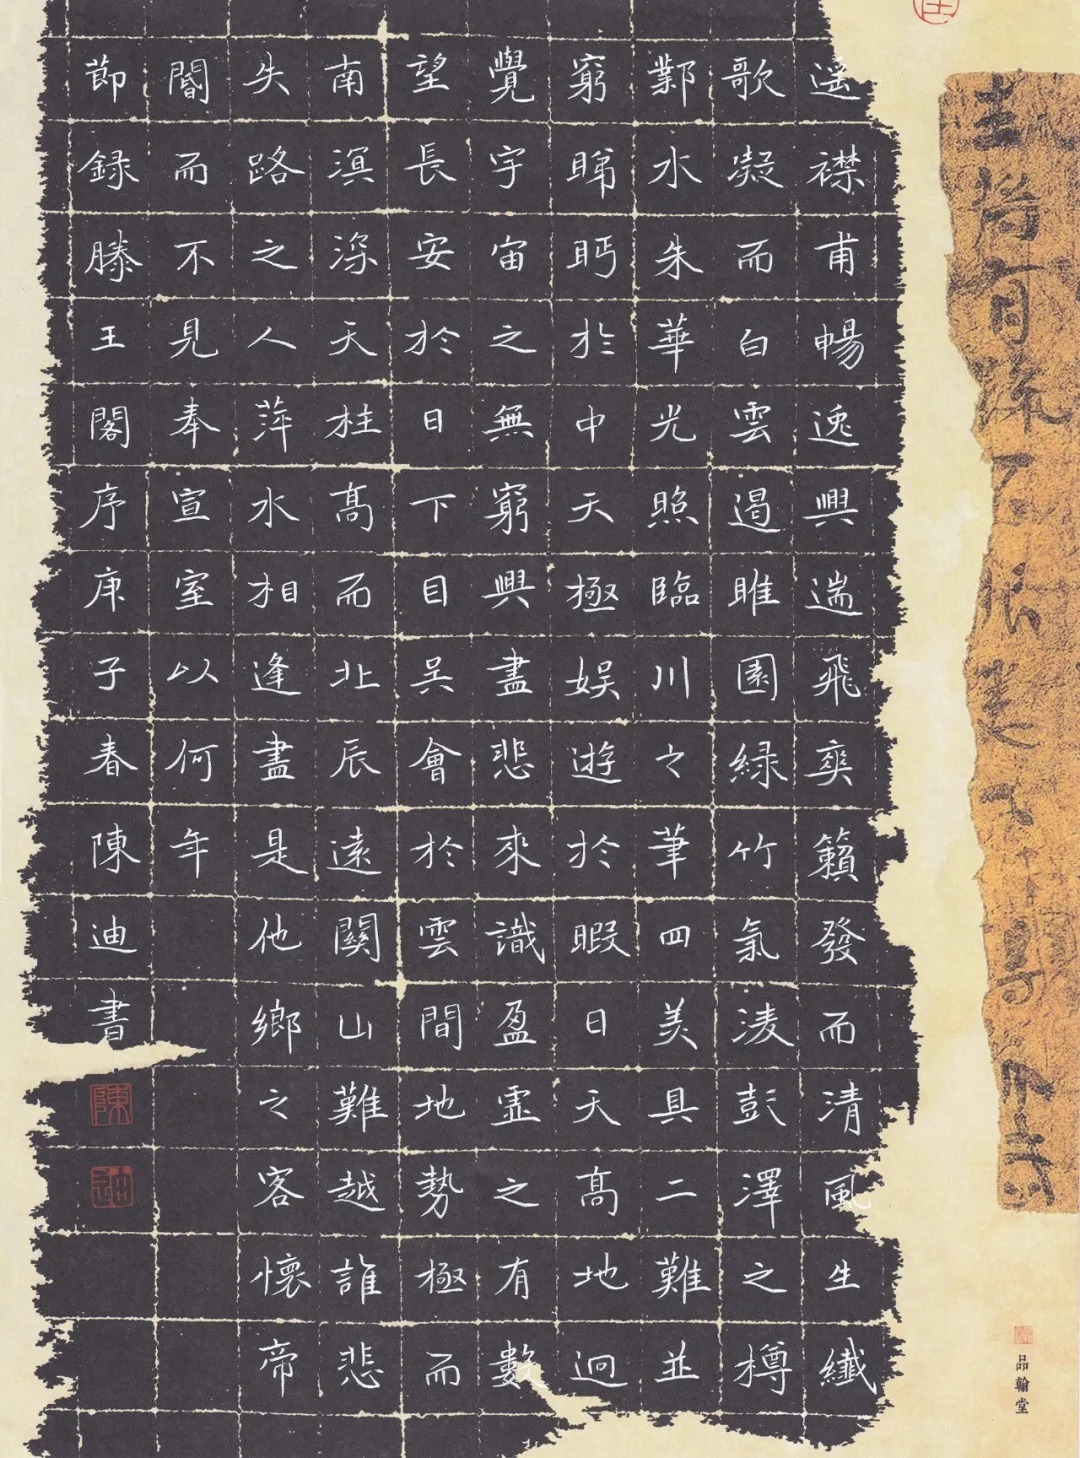 遥襟甫暢逸興遄飛爽籟發而清風生纖
歌凝而白雲遏睢園綠竹氣淩彭澤之樽
鄴水朱華光照臨川之筆四美具二難並
窮睇眄於中天極娱遊於暇日天高地迥
覺宇宙之無窮興盡悲來識盈虛之有數
望長安於日下目吴會於雲間地勢極而
南溟深天柱高而北辰遠關山難越誰悲
失路之人萍水相逢盡是他鄉之客懷帝
閽而不見奉宣室以何年
節録滕王閣序庚子春陳迪書
陳
迪
品翰堂